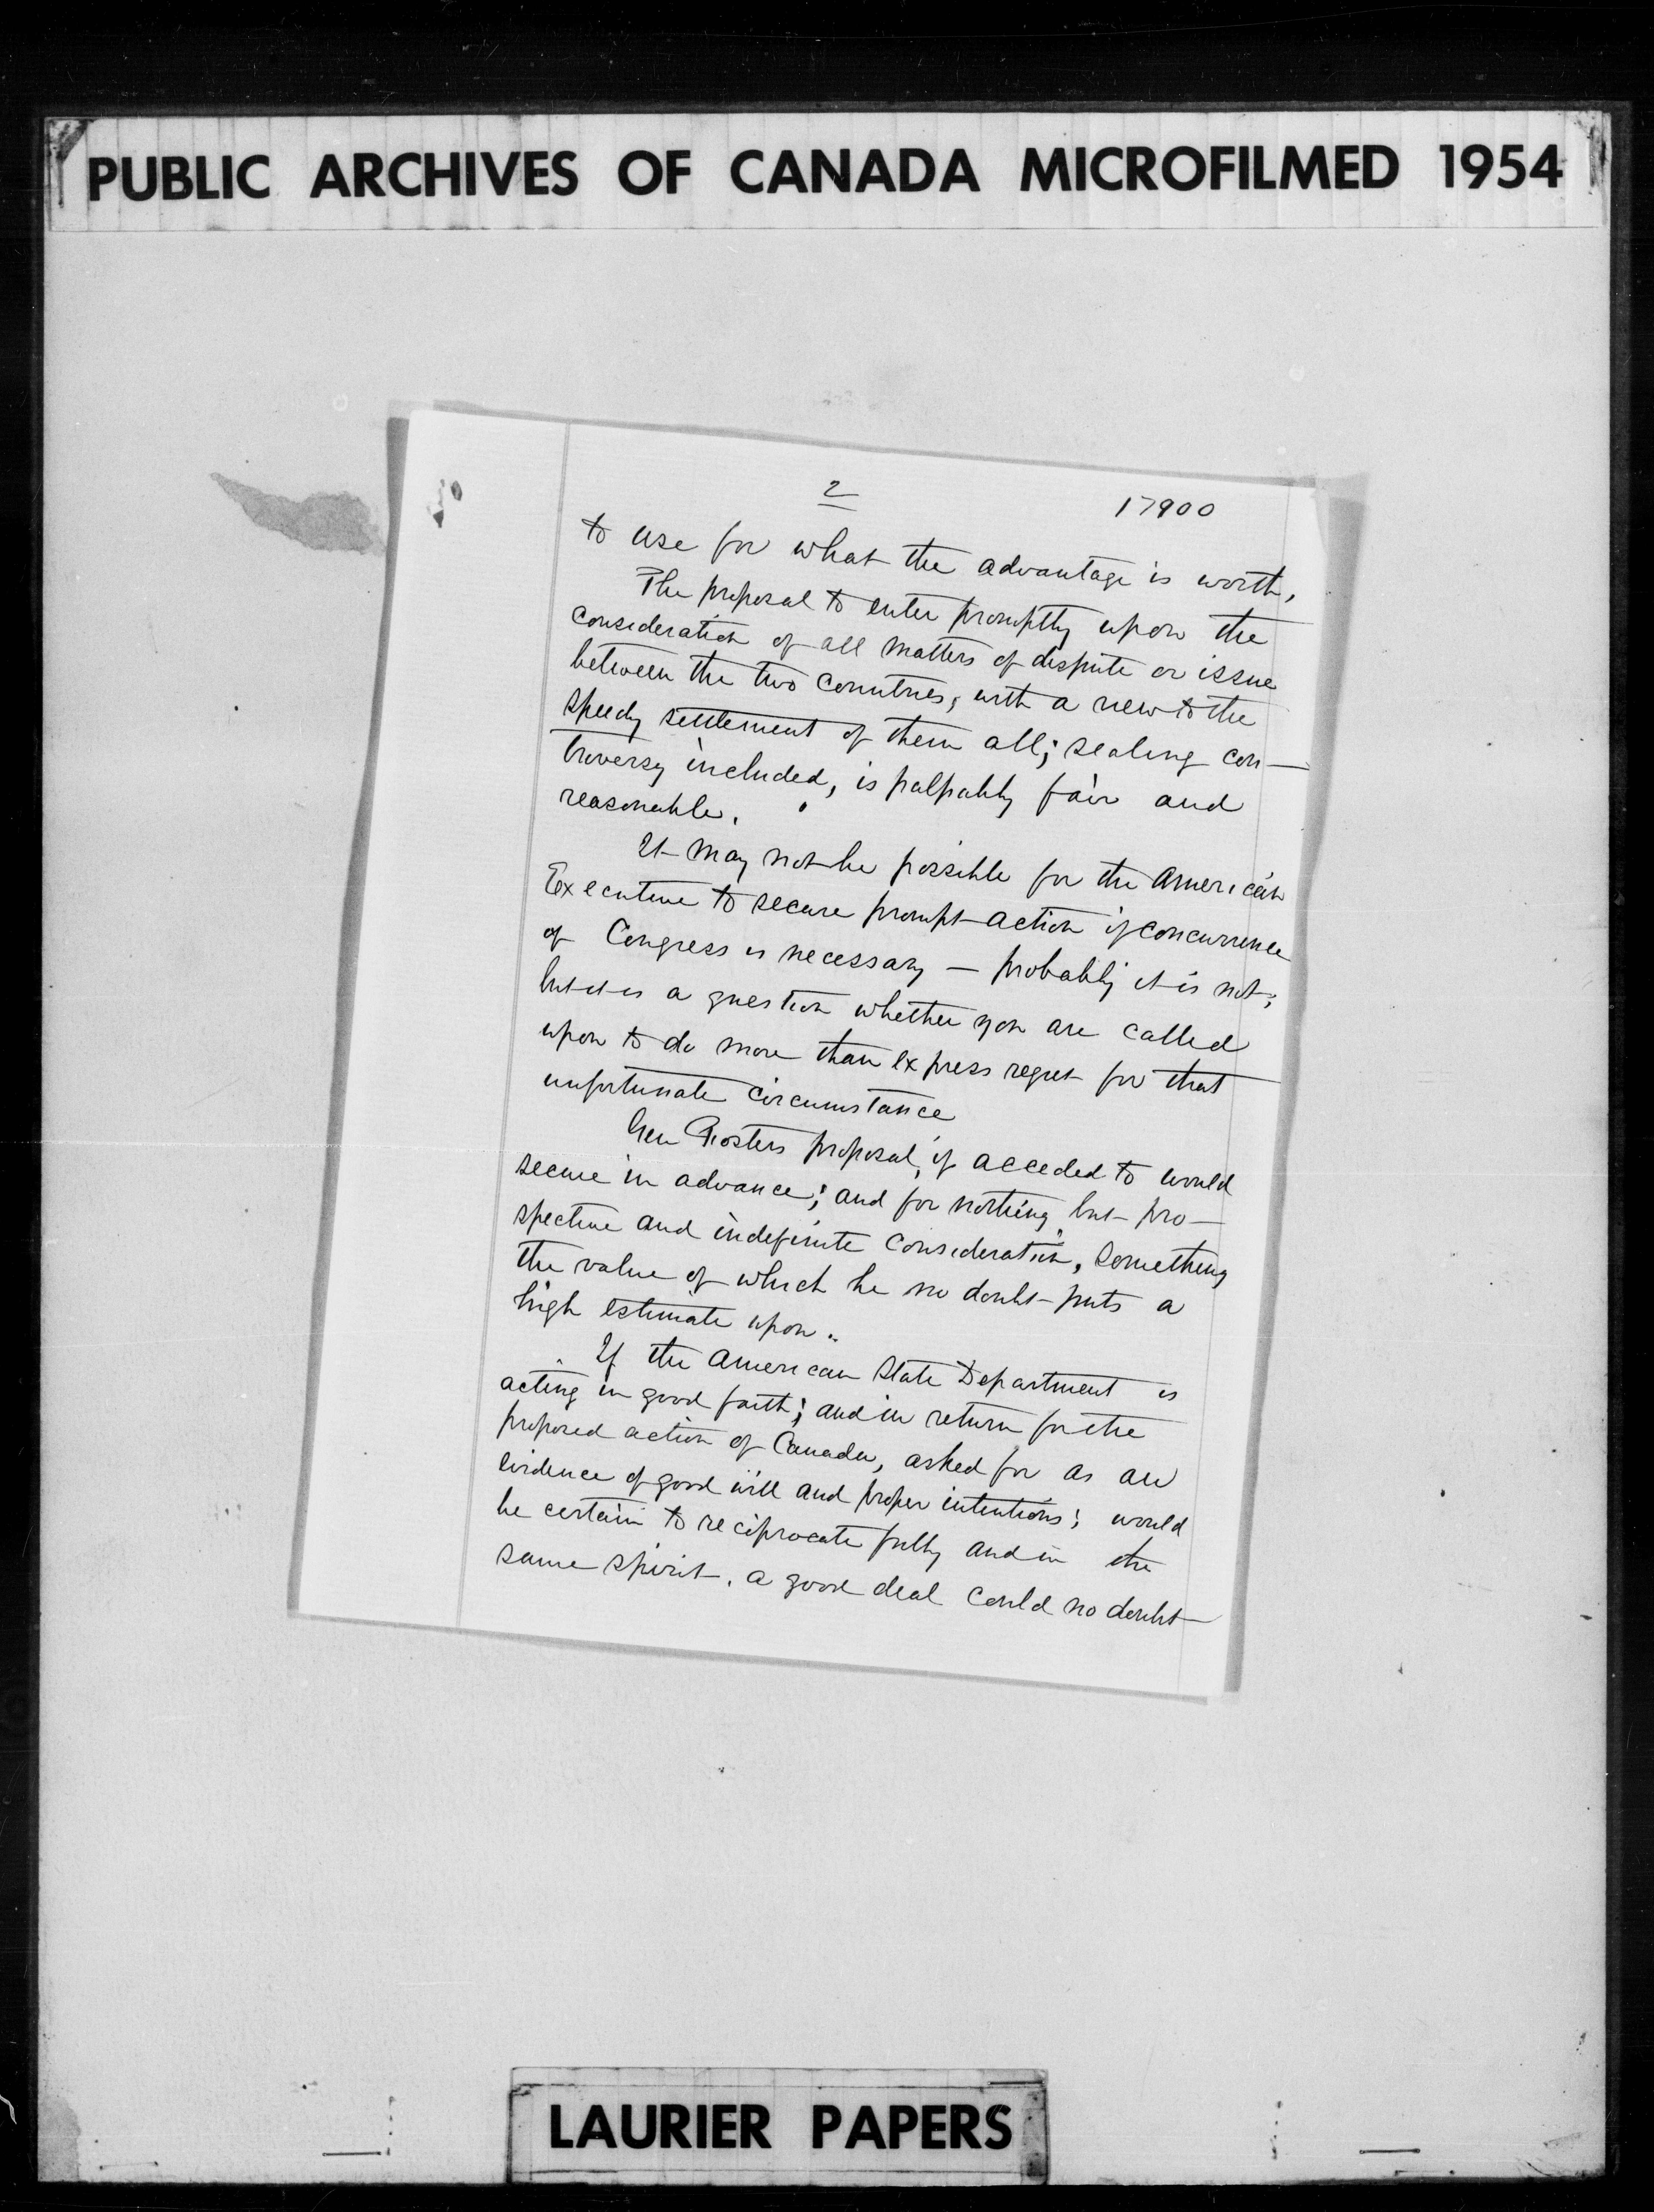 PUBLIC ARCHIVES OF CANADA MICROFILMED 1954
2
17900
to use for what the advantage is worth,
The proposal to enter promptly upon the
consideration of all matters of dispute or issue
between the two countries, with a view to the
speedy settlement of them all; sealing con-
troversy included, is palpably fair and
reasonable.
It may not be possible for the American
Executive to secure prompt action if concurrence
of Congress is necessary — probably it is not;
but it is a question whether you are called
upon to do more than express regret for that
unfortunate circumstance
Gen Fosters proposal, if acceded to would
secure in advance; and for nothing but pro-
spective and indefinite consideration, something
the value of which he no doubt puts a
high estimate upon.
If the American State Department is
acting in good faith; and in return for the
proposed action of Canada, asked for as an
evidence of good will and proper intentions; would
be certain to reciprocate fully and in the
same spirit. a good deal could no doubt
LAURIER PAPERS